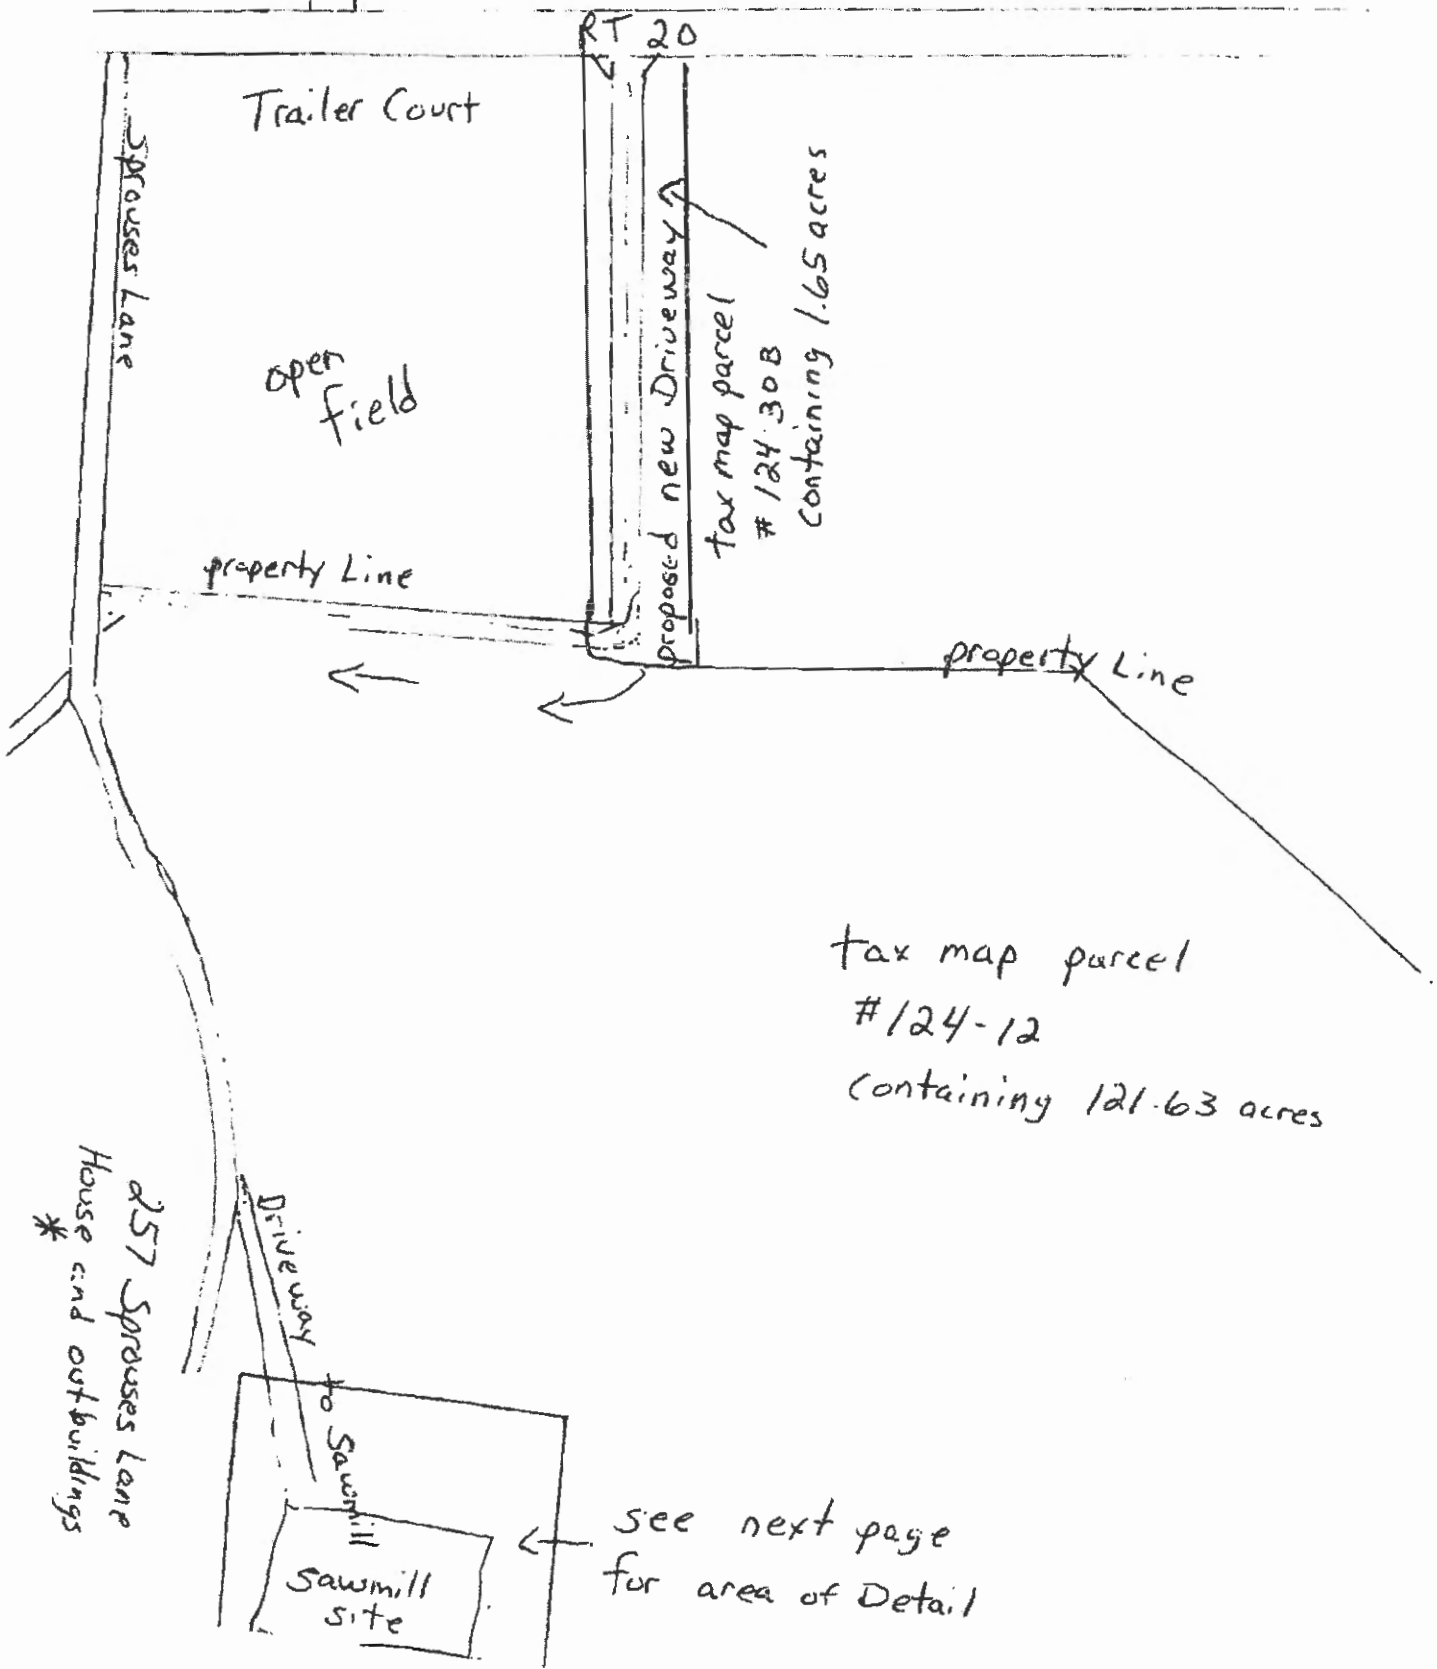 RT 20
Trailer Court
Sprouses Lane
open
field
proposed new Driveway
tax map parcel
# 124-30B
containing 1.65 acres
property Line
property Line
tax map parcel
#124-12
containing 121.63 acres
257 Sprouses Lane
House and outbuildings
*
Driveway to Sawmill
see next page
for area of Detail
sawmill
site